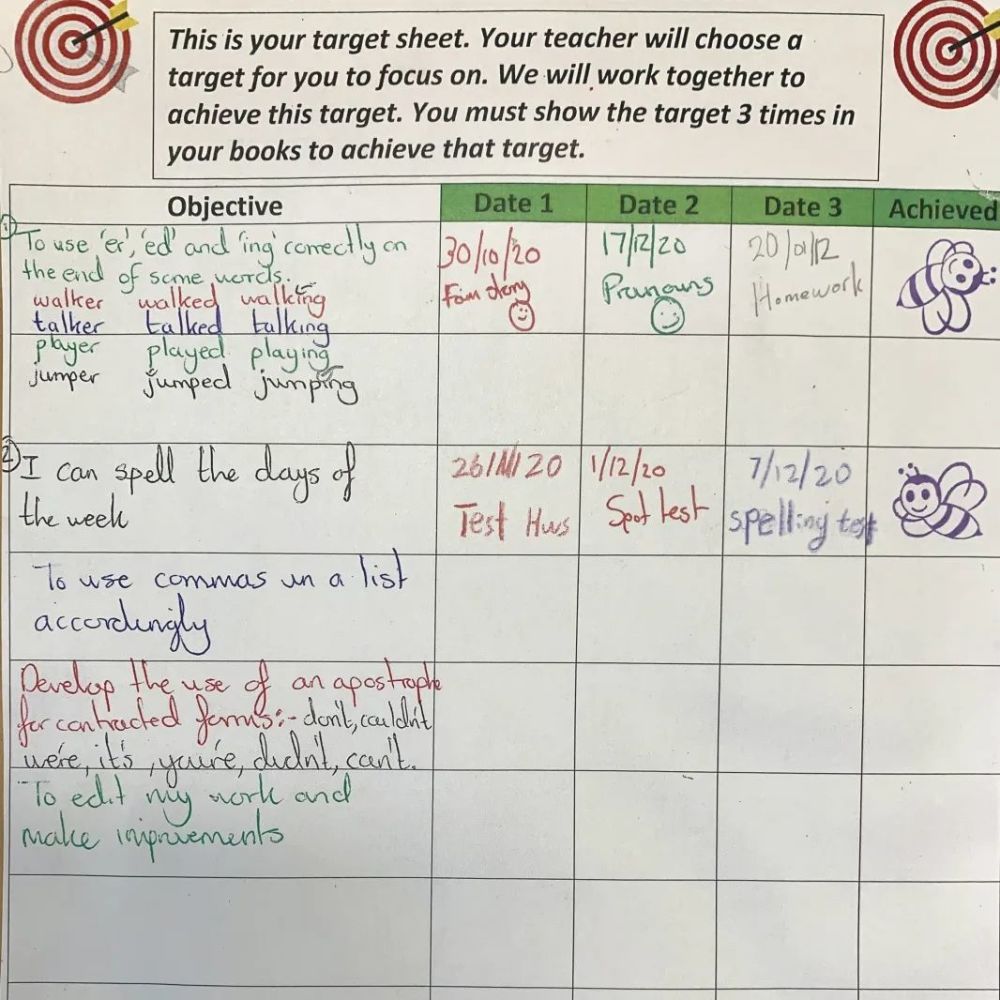 This is your target sheet. Your teacher will choose a
target for you to focus on. We will work together to
achieve this target. You must show the target 3 times in
your books to achieve that target.
Objective Date 1 Date 2 Date 3 Achieved
① To use 'er', 'ed' and 'ing' correctly on
the end of some words.
walker walked walking
talker talked talking
player played playing
jumper jumped jumping
30/10/20
17/12/20
Pronouns
20/01/12
Homework
② I can spell the days of
the week
26/11/20
Test Hws
1/12/20
Spot test
7/12/20
spelling test
To use commas in a list
accordingly
Develop the use of an apostrophe
for contracted forms:- don't, couldn't
we're, it's, you're, didn't, can't.
To edit my work and
make improvements